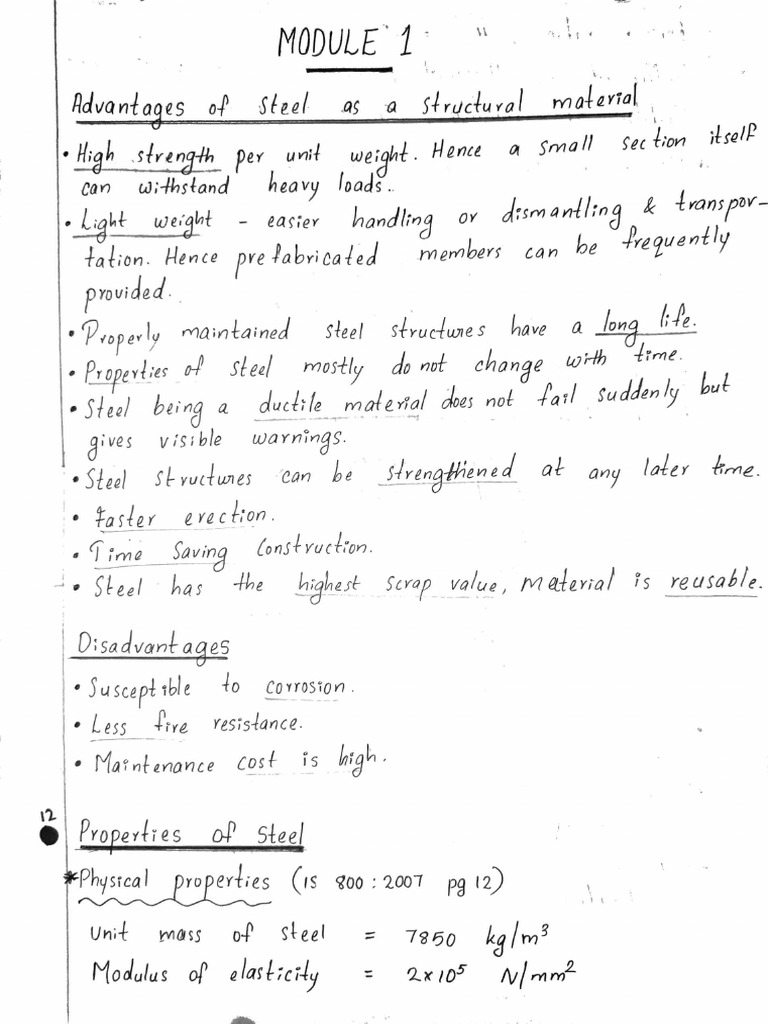 MODULE 1
Advantages of steel as a structural material
• High strength per unit weight. Hence a small section itself
can withstand heavy loads.
• Light weight - easier handling or dismantling & transpor-
tation. Hence prefabricated members can be frequently
provided.
• Properly maintained steel structures have a long life.
• Properties of steel mostly do not change with time.
• Steel being a ductile material does not fail suddenly but
gives visible warnings.
• Steel structures can be strengthened at any later time.
• Faster erection.
• Time Saving Construction.
• Steel has the highest scrap value, material is reusable.
Disadvantages
• Susceptible to corrosion.
• Less fire resistance.
• Maintenance cost is high.
12
Properties of Steel
*Physical properties (IS 800 : 2007 pg 12)
Unit mass of steel = 7850 kg/m³
Modulus of elasticity = 2×10⁵ N/mm²